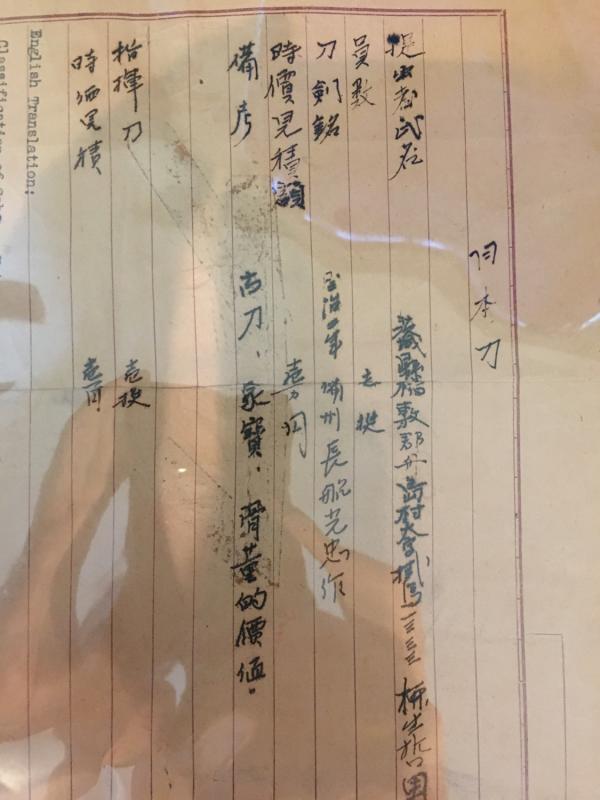 日本刀
提出者氏名 茨城縣稲敷郡舟島村大字 三三三 哲男
員数 壱挺
刀剣銘 四年 備州長船光忠作
時價見積額 壱万円
備考 古刀、家寳、骨董的價値。
指揮刀 壱挺
時価見積 壱円
English Translation:
Classification of